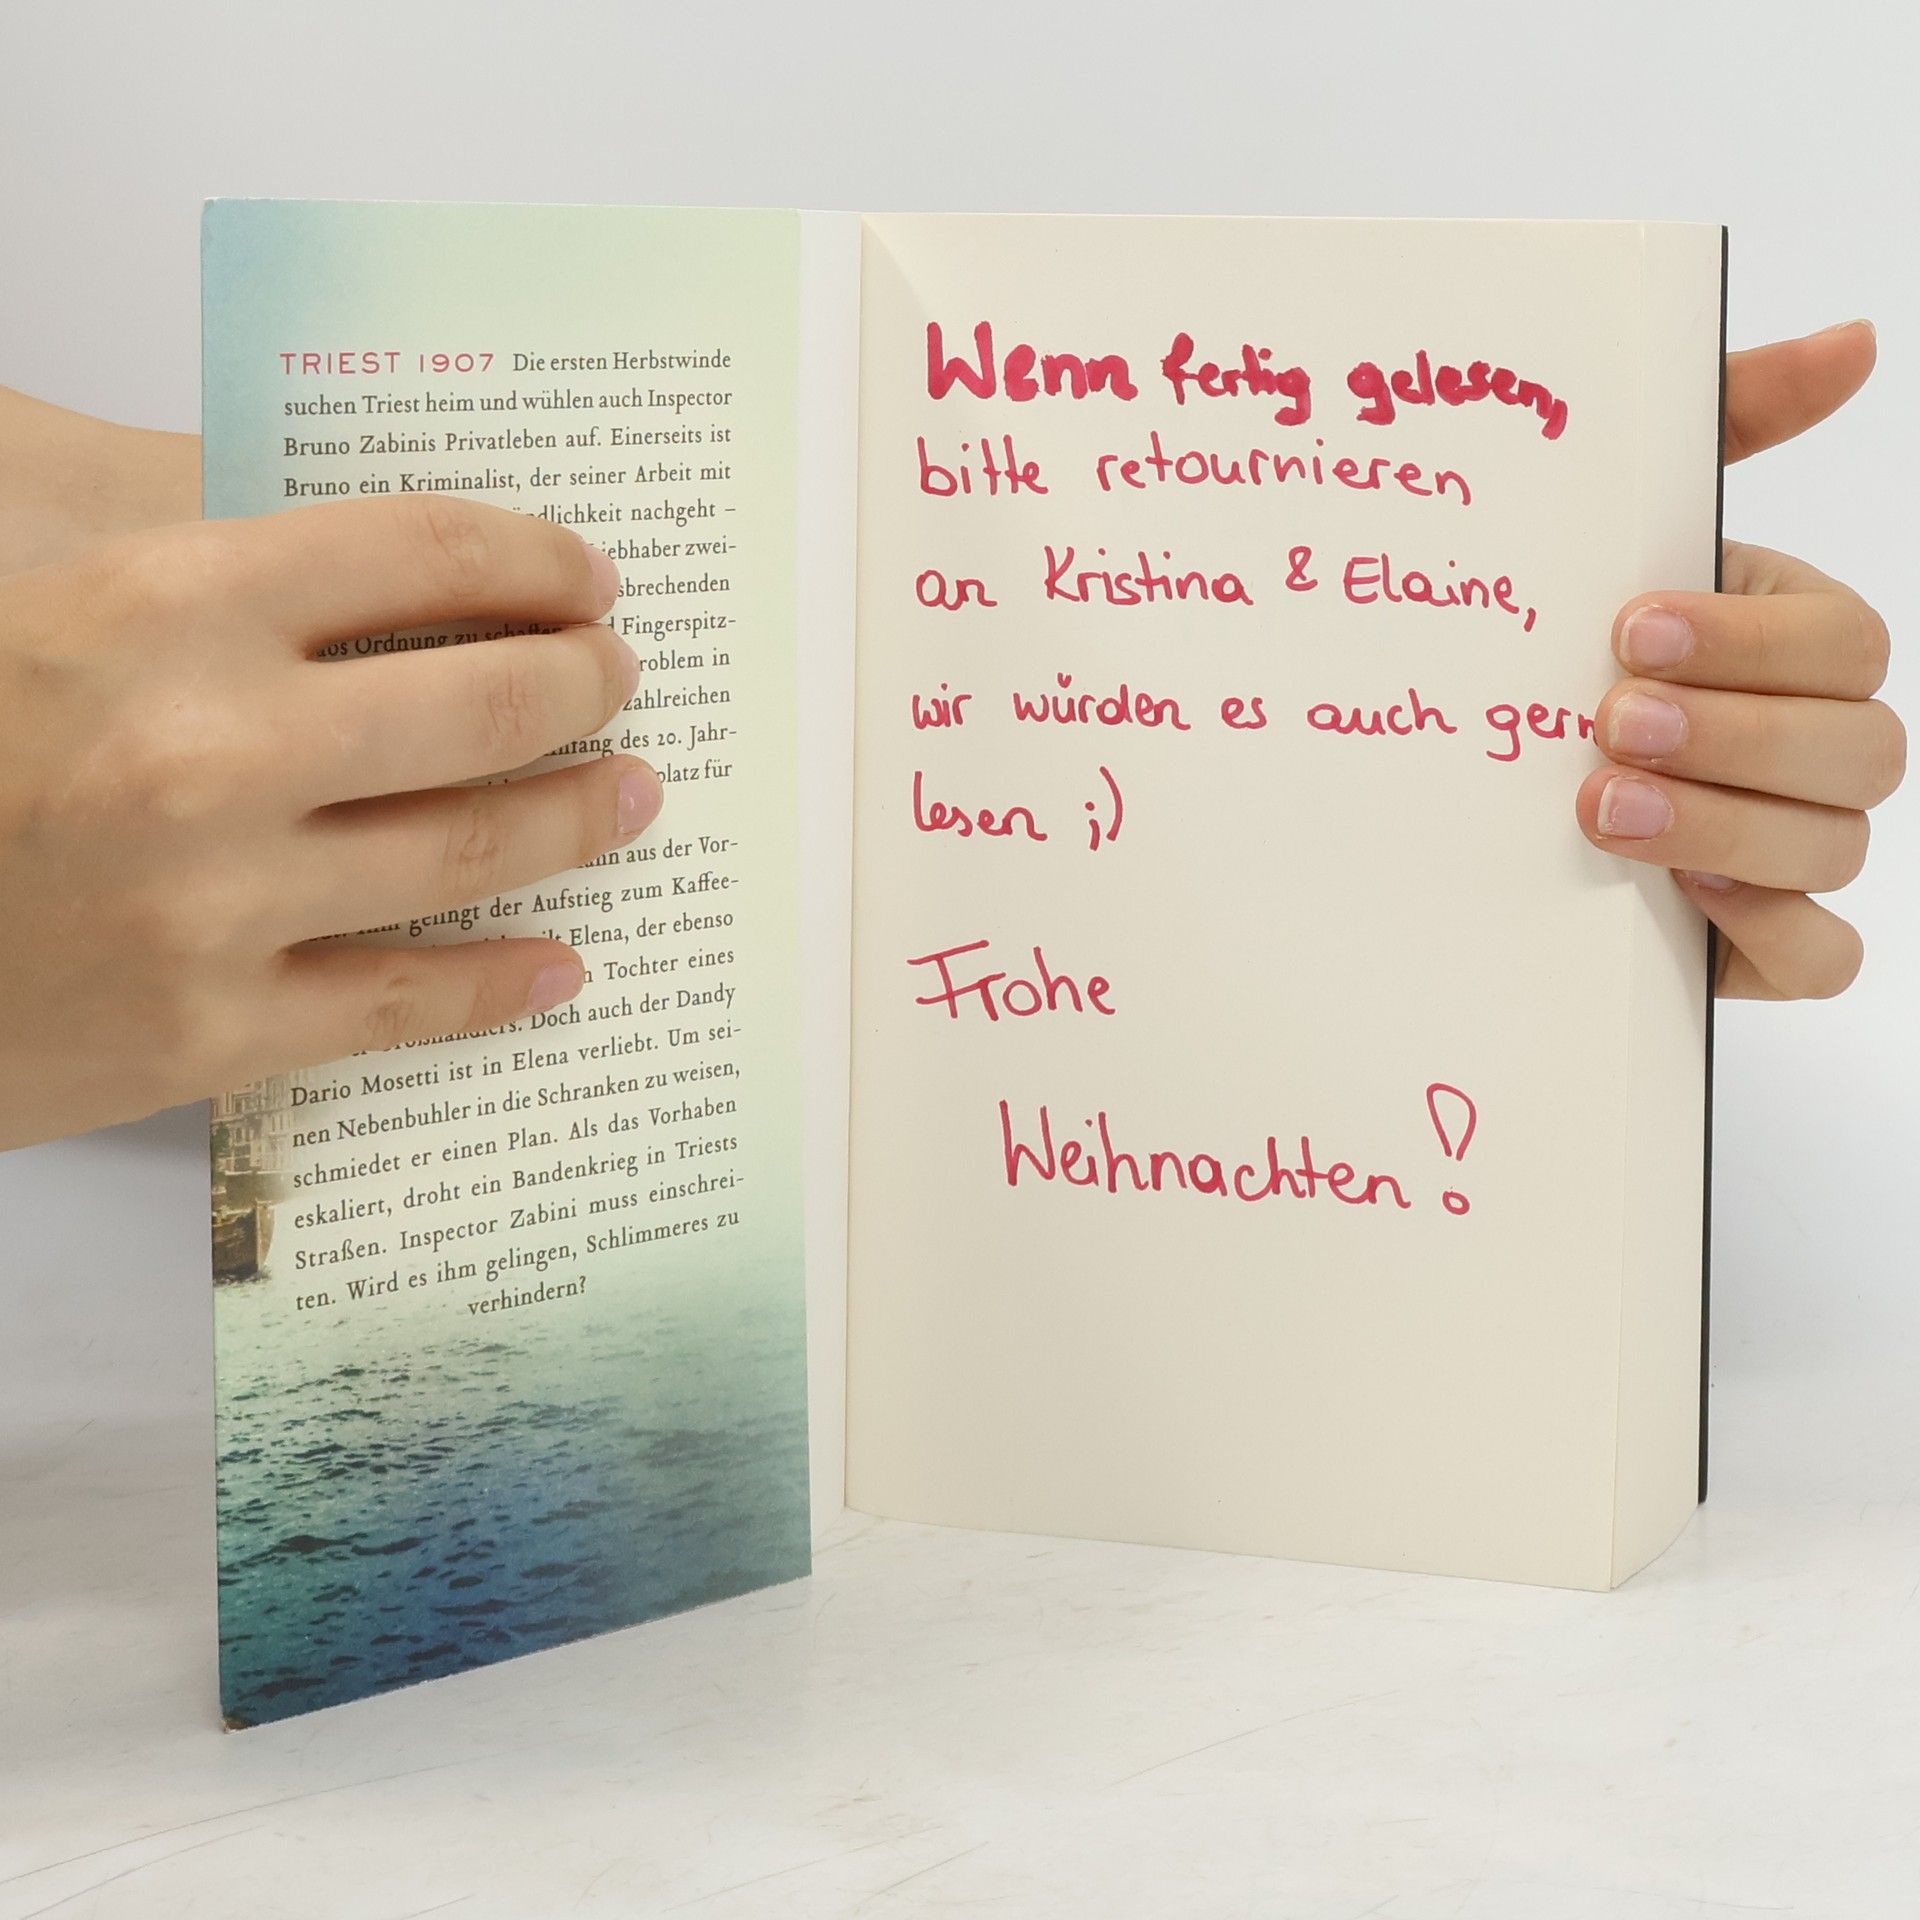 TRIEST 1907 Die ersten Herbstwinde
suchen Triest heim und wühlen auch Inspector
Bruno Zabinis Privatleben auf. Einerseits ist
Bruno ein Kriminalist, der seiner Arbeit mit
nachgeht –
zwei-
Ordnung zu Fingerspitz-
in
zahlreichen
des 20. Jahr-
für
aus der Vor-
gelingt der Aufstieg zum Kaffee-
Elena, der ebenso
Tochter eines
Doch auch der Dandy
Dario Mosetti ist in Elena verliebt. Um sei-
nen Nebenbuhler in die Schranken zu weisen,
schmiedet er einen Plan. Als das Vorhaben
eskaliert, droht ein Bandenkrieg in Triests
Straßen. Inspector Zabini muss einschrei-
ten. Wird es ihm gelingen, Schlimmeres zu
verhindern?
Wenn fertig gelesen,
bitte retournieren
an Kristina & Elaine,
wir würden es auch
lesen ;)
Frohe
Weihnachten!